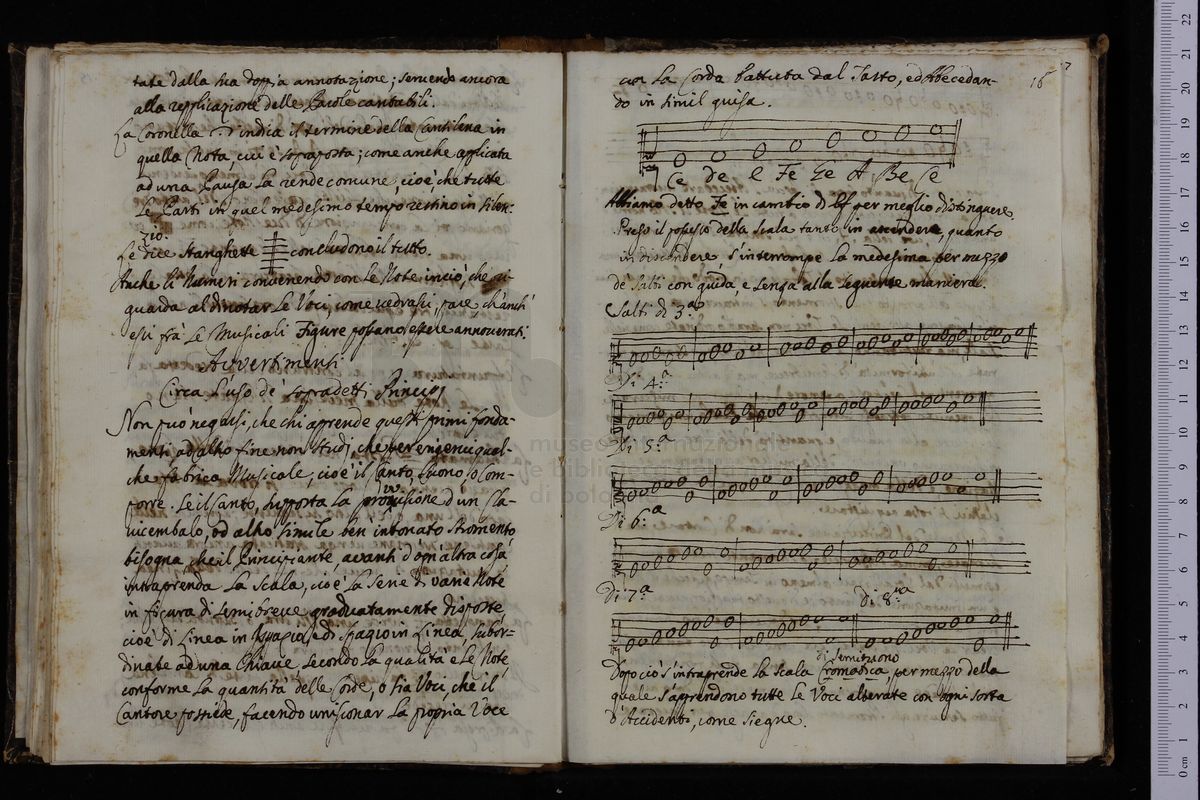 tate dalla sua doppia annotazione; servendo ancora
alla replicazione delle Parole cantabili.
La Coronella indica il termine della Cantilena in
quella Nota, cui è soprapposta; come anche applicata
ad una Pausa La rende comune, cioè che tutte
Le Parti in quel medesimo tempo restino in silen:
zio.
Le due Stanghette concludono il tutto.
Anche li Numeri convenendo con Le Note in ciò, che ri:
guarda al dinotar Le Voci, come vedrassi, pare ch'anch'
essi frà Le Musicali Figure possano essere annoverati.
Avvertimenti
Circa L'uso de' sopradetti Principj
Non può negarsi, che chi aprende questi primi fonda-
menti ad altro fine non studj, che per erigervi qual-
che fabrica Musicale, cioè il Canto, Suono, o Com-
porre. Se il Canto, supposta La provisione d'un Cla-
vicembalo, od altro simile ben intonato stromento
bisogna che il Principiante, avanti d'ogn'altra cosa
intraprenda La Scala, cioè La Serie di varie Note
in figura di Semibreve gradatamente disposte
cioè di Linea in Spazio, e di spazio in Linea, subor-
dinate ad una Chiave secondo La qualità e Le Note
conforme La quantità delle Corde, o sia Voci, che il
Cantore possiede, facendo unisonar La propria Voce
16
con La Corda battuta dal Tasto, ed Abecedan-
do in simil guisa.
Ce De E Fe Ge A Be Ce
Abbiamo detto Fe in cambio di Ef per meglio distinguere.
Preso il possesso della Scala tanto in ascendere, quanto
in discendere, s'interrompe La medesima per mezzo
de' Salti con guida, e senza alla seguente maniera.
Salti di 3.ª
Di 4.ª
Di 5.ª
Di 6.ª
Di 7.ª
Di 8.va
di semituono
Dopo ciò s'intraprende La Scala Cromatica, per mezzo della
quale s'aprendono tutte Le Voci alterate con ogni sorta
d'Accidenti, come siegue.
museo
e biblio
di bolo
0 cm 1 2 3 4 5 6 7 8 9 10 11 12 13 14 15 16 17 18 19 20 21 22